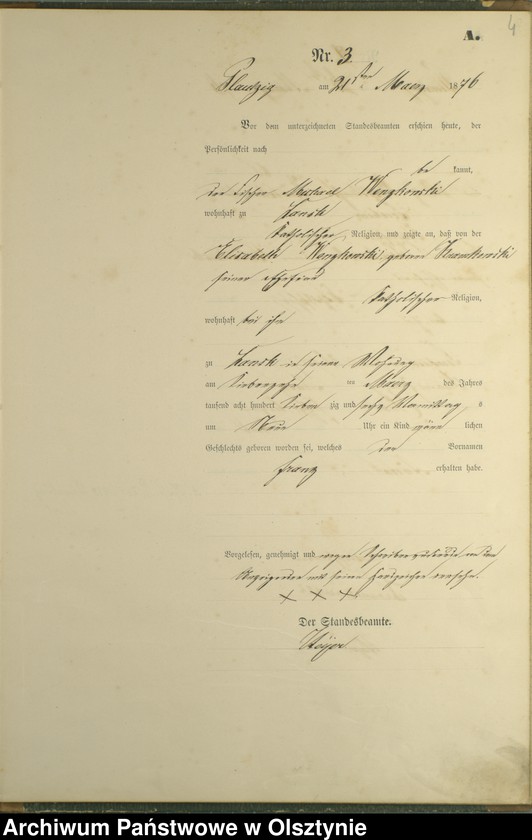 4
A.
Nr. 3
Plautzig am 21ten Maerz 1876
Vor dem unterzeichneten Standesbeamten erschien heute, der
Persönlichkeit nach
be kannt,
der Fischer Michael Wengkowski
wohnhaft zu Lansk
katholischer Religion, und zeigte an, daß von der
Elisabeth Wengkowski, geboren
seiner Ehefrau
katholischer Religion,
wohnhaft bei ihm
zu Lansk in seiner Wohnung
am siebenzehn ten Maerz des Jahres
tausend acht hundert sieben zig und sechs Vormittag s
um Neun Uhr ein Kind männ lichen
Geschlechts geboren worden sei, welches den Vornamen
Franz erhalten habe.
Vorgelesen, genehmigt und wegen
Anzeigenden mit seinem Handzeichen versehen.
X X X
Der Standesbeamte.
Archiwum Państwowe w Olsztynie